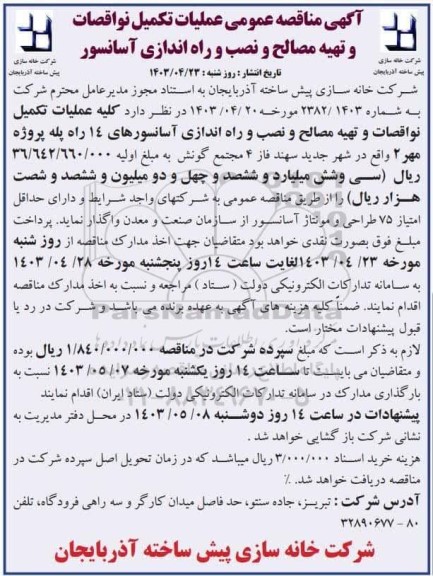 آگهی مناقصه عمومی عملیات تکمیل نواقصات
و تهیه مصالح و نصب و راه اندازی آسانسور
شرکت خانه سازی
پیش ساخته آذربایجان
شرکت خانه سازی
پیش ساخته آذربایجان
تاریخ انتشار : روز شنبه : ۱۴۰۳/۰۴/۲۳
شرکت خانه سازی پیش ساخته آذربایجان به استناد مجوز مدیرعامل محترم شرکت
به شماره ۱۴۰۳ /۲۳۸۲ مورخه ۲۰ /۰۴/ ۱۴۰۳ در نظر دارد کلیه عملیات تکمیل
نواقصات و تهیه مصالح و نصب و راه اندازی آسانسورهای ۱۴ راه پله پروژه
مهر۲ واقع در شهر جدید سهند فاز ۴ مجتمع گونش به مبلغ اولیه ۳۶/۶۴۲/۶۶۰/۰۰۰
ریال (سی وشش میلیارد و ششصد و چهل و دو میلیون و ششصد و شصت
هزار ریال) را از طریق مناقصه عمومی به شرکتهای واجد شرایط و دارای حداقل
امتیاز ۷۵ طراحی و مونتاژ آسانسور از سازمان صنعت و معدن واگذار نماید. پرداخت
مبلغ فوق بصورت نقدی خواهد بود متقاضیان جهت اخذ مدارک مناقصه از روز شنبه
مورخه ۲۳ /۰۴ /۱۴۰۳ لغایت ساعت ۱۴روز پنجشنبه مورخه ۲۸ /۰۴ /۱۴۰۳
به سامانه تدارکات الکترونیکی دولت ( ستاد ) مراجعه و نسبت به اخذ مدارک مناقصه
اقدام نمایند. ضمنا کلیه هزینه های آگهی به عهده برنده می باشد و شرکت در رد یا
قبول پیشنهادات مختار است.
لازم به ذکر است که مبلغ سپرده شرکت در مناقصه ۱/۸۴۰/۰۰۰/۰۰۰ ریال بوده
و متقاضیان می بایست تا ساعت ۱۴ روز یکشنبه مورخه ۰۷ /۰۵ /۱۴۰۳ نسبت به
بارگذاری مدارک در سامانه تدارکات الکترونیکی دولت (ستاد ایران) اقدام نمایند
پیشنهادات در ساعت ۱۴ روز دوشنبه ۰۸ /۰۵ /۱۴۰۳ در محل دفتر مدیریت به
نشانی شرکت باز گشایی خواهد شد .
هزینه خرید اسناد ۳/۰۰۰/۰۰۰ ریال میباشد که در زمان تحویل اصل سپرده شرکت در
مناقصه دریافت خواهد شد. ٪
آدرس شرکت : تبریز، جاده سنتو، حد فاصل میدان کارگر و سه راهی فرودگاه، تلفن
۸۰ - ۳۲۸۹۰۶۷۷
شرکت خانه سازی پیش ساخته آذربایجان